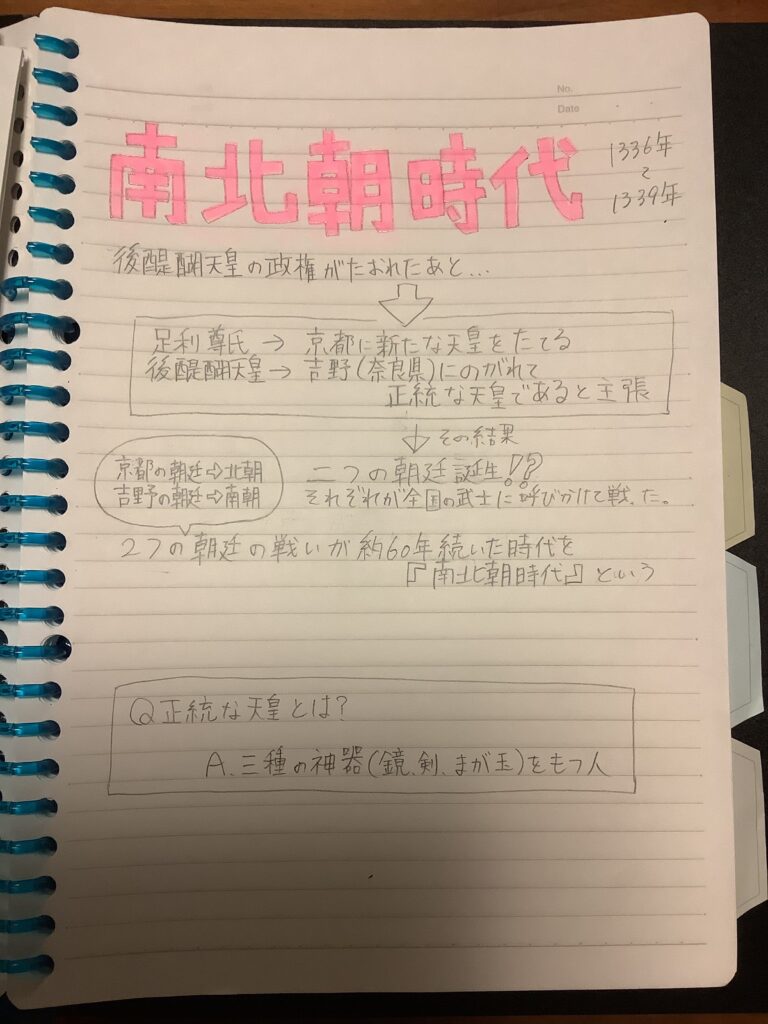 No.
Date
南北朝時代
1336年
〜
1339年
後醍醐天皇の政権がたおれたあと...
足利尊氏 → 京都に新たな天皇をたてる
後醍醐天皇 → 吉野(奈良県)にのがれて
正統な天皇であると主張
↓ その結果
京都の朝廷⇨北朝
吉野の朝廷⇨南朝
二つの朝廷誕生!?
それぞれが全国の武士に呼びかけて戦った。
2つの朝廷の戦いが約60年続いた時代を
『南北朝時代』という
Q 正統な天皇とは?
A. 三種の神器(鏡、剣、まが玉)をもつ人